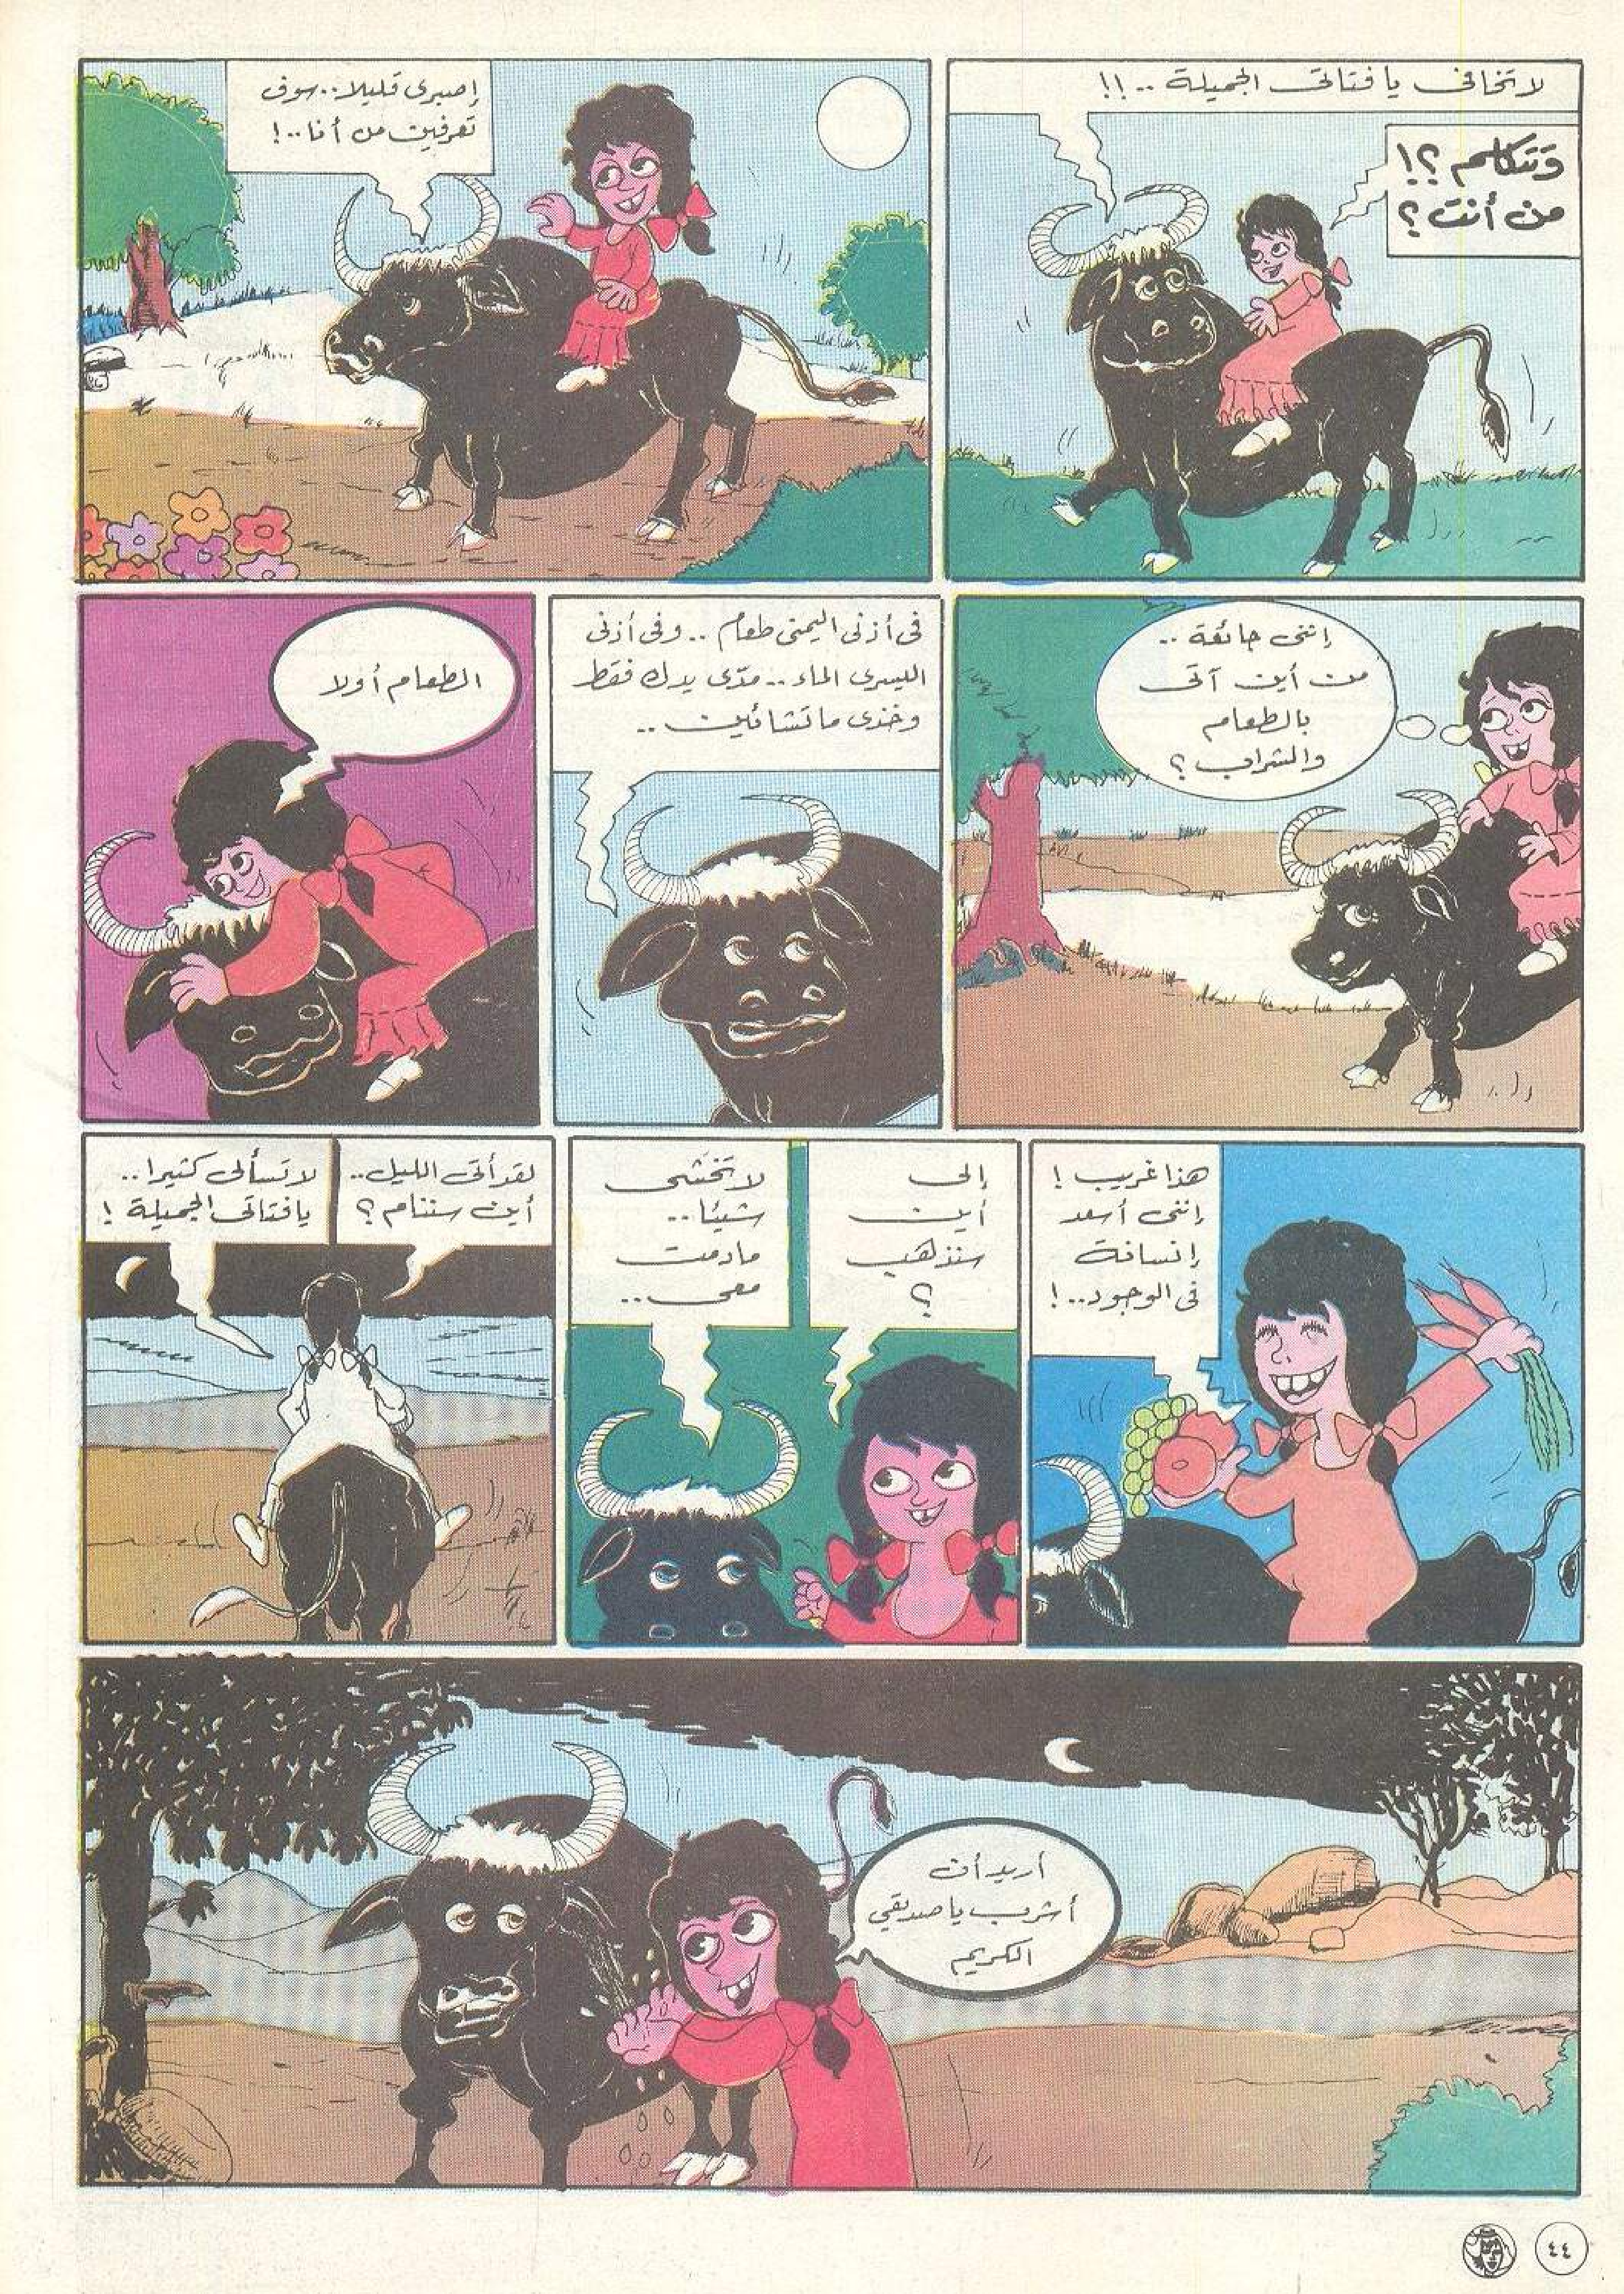 لا تخافى يا فتاتى الجميلة ..!!
وَتتكلم ؟!
من أنت ؟
إصبرى قليلا .. سوف
تعرفين من أنا ..!
إننى جائعة ..
من أين آتى
بالطعام
والشراب ؟
فى أذنى اليمنى طعام .. وفى أذنى
اليسرى الماء .. مدّى يدك فقط
وخذى ما تشائين ..
الطعام أولا
هذا غريب !
إننى أسعد
إنسانة
فى الوجود ..!
إلى
أين
سنذهب
؟
لا تخشى
شيئا ..
مادمت
معى ..
لقد أتى الليل ..
أين سننام ؟
لا تسألى كثيرا ..
يا فتاتى الجميلة !
أريد أن
أشرب يا صديقي
الكريم
٤٤